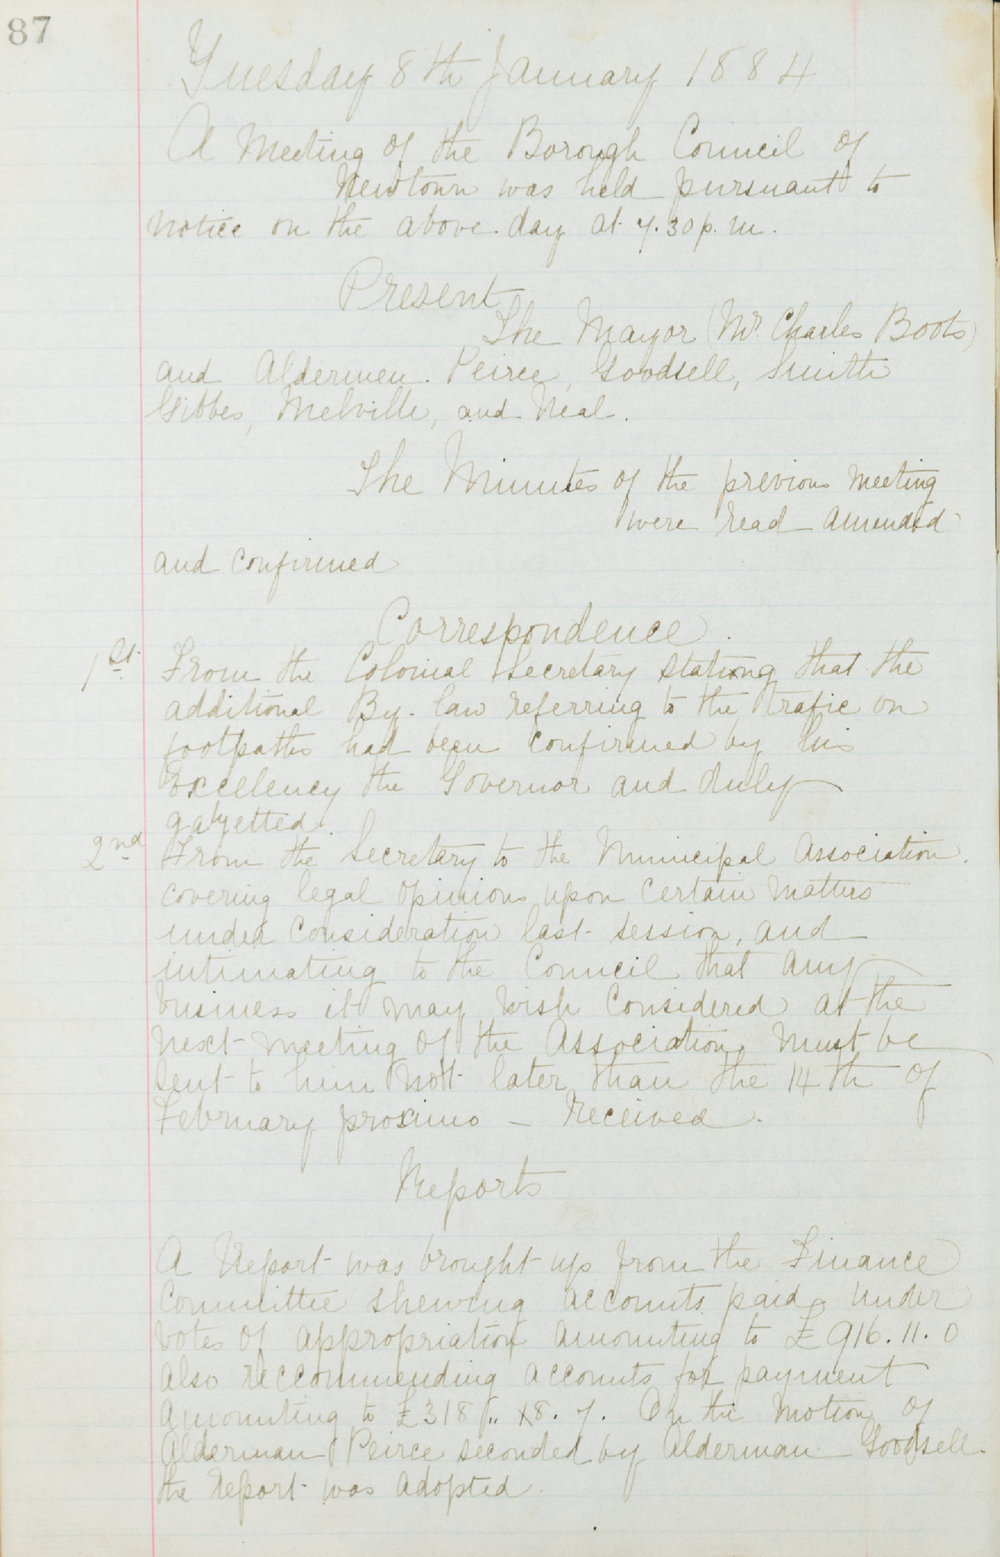 87
Tuesday 8th January 1884
A Meeting of the Borough Council of
Newtown was held pursuant to
notice on the above day at 7.30 p.m.
Present
The Mayor (Mr. Charles Boots)
and Aldermen Peirce, Goodsell, Smith
Gibbes, Melville, and Neal.
The Minutes of the previous Meeting
were read amended
and confirmed
Correspondence.
1st. From the Colonial Secretary stating that the
additional By-law referring to the trafic on
footpaths had been confirmed by his
Excellency the Governor and duly
gazetted.
2nd From the Secretary to the Municipal Association.
covering legal opinions upon certain matters
under consideration last session, and
intimating to the Council that any
business it may wish considered at the
next meeting of the Association must be
sent to him not later than the 14th of
February proximo – Received.
Reports
A Report was brought up from the Finance
Committee shewing accounts paid under
votes of appropriation amounting to £916.11.0
also reccommending accounts for payment
amounting to £318 8.7. On the motion of
Alderman Peirce seconded by Alderman Goodsell
the Report was adopted.